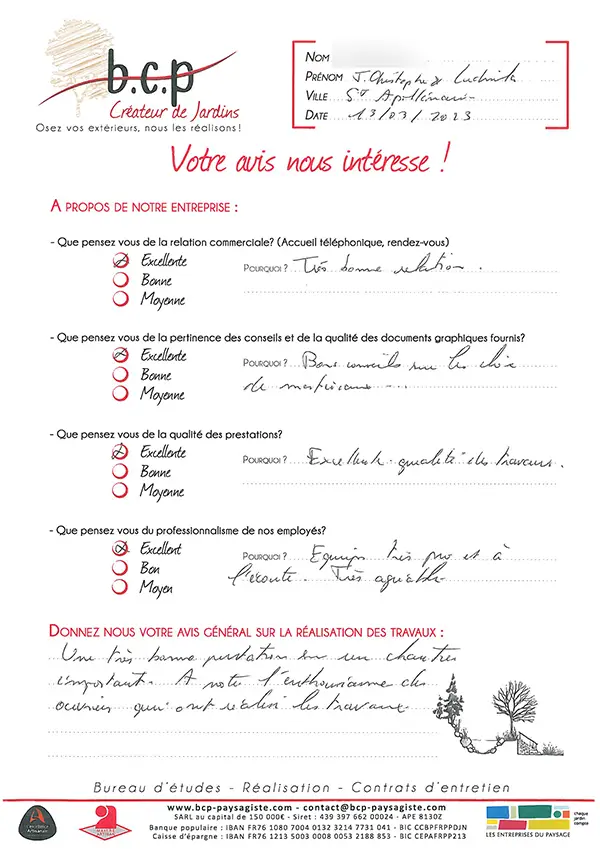 b.c.p
Créateur de Jardins
Osez vos extérieurs, nous les réalisons!
NOM
PRÉNOM J. Christophe & Ludmila
VILLE ST Apollinaire
DATE 13/03/2023
Votre avis nous intéresse !
A PROPOS DE NOTRE ENTREPRISE :
- Que pensez vous de la relation commerciale? (Accueil téléphonique, rendez-vous)
Excellente
POURQUOI ? Très bonne relation.
Bonne
Moyenne
- Que pensez vous de la pertinence des conseils et de la qualité des documents graphiques fournis?
Excellente
POURQUOI ? Bons conseils sur les choix
Bonne
de matériaux ...
Moyenne
- Que pensez vous de la qualité des prestations?
Excellente
POURQUOI ? Excellente qualité des travaux.
Bonne
Moyenne
- Que pensez vous du professionnalisme de nos employés?
Excellent
POURQUOI ? Equipe très pro et à
Bon
l'écoute. Très agréable
Moyen
DONNEZ NOUS VOTRE AVIS GÉNÉRAL SUR LA RÉALISATION DES TRAVAUX :
Une très bonne prestation sur un chantier
important. A noter l'enthousiasme des
ouvriers qui ont réalisé les travaux
Bureau d'études - Réalisation - Contrats d'entretien
www.bcp-paysagiste.com - contact@bcp-paysagiste.com
SARL au capital de 150 000€ - Siret : 439 397 662 00024 - APE 8130Z
Banque populaire : IBAN FR76 1080 7004 0132 3214 7731 041 - BIC CCBPFRPPDJN
Caisse d'épargne : IBAN FR76 1213 5003 0008 0053 2188 853 - BIC CEPAFRPP213
LES ENTREPRISES DU PAYSAGE